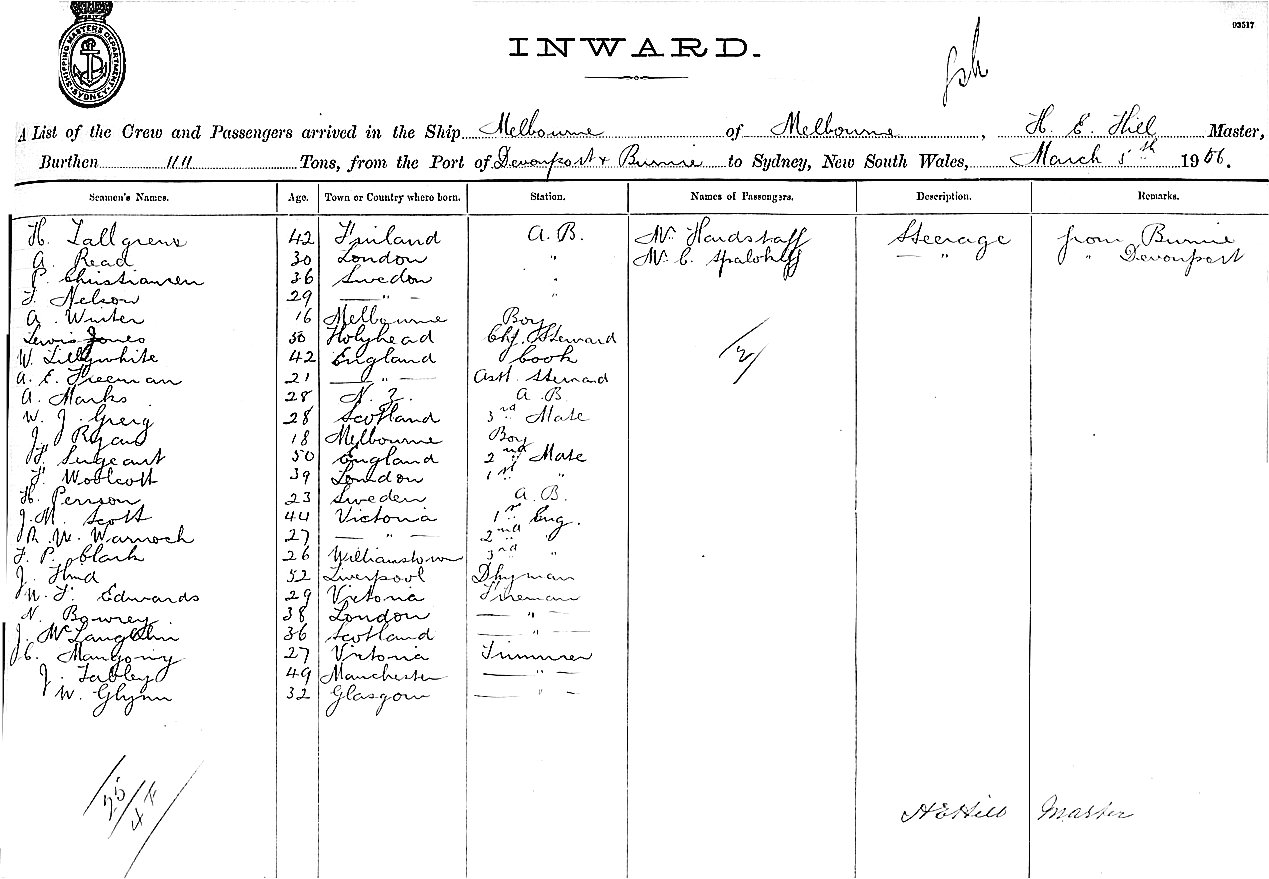 SHIPPING MASTERS DEPARTMENT SYDNEY
03517
INWARD.
A List of the Crew and Passengers arrived in the Ship Melbourne of Melbourne, H. E. Hill Master,
Burthen " " Tons, from the Port of Devonport & Burnie to Sydney, New South Wales, March 5th 1906.
Seamen's Names. Age. Town or Country where born. Station. Names of Passengers. Description. Remarks.
H. Tallgrens 42 Finland A.B. Mr Hardstaff Steerage from Burnie
A. Read 30 London " Mr C. — " — " Devonport
P. Christiansen 36 Swedon "
F. Nelson 29 — " — "
A. Winter 16 Melbourne Boy
Lewis Jones 50 Holyhead Chf. Steward
W. Lillywhite 42 England Cook
A. E. Freeman 21 — " — Asst. Steward
A. Marks 28 N. Z. A.B.
W. J. Greig 28 Scotland 3rd Mate
J. Ryan 18 Melbourne Boy
F. Sergeant 50 England 2nd Mate
F. Woolcott 39 London 1st "
H. Person 23 Sweden A.B.
J. M. Scott 44 Victoria 1st Eng.
R. W. Warnock 27 — " — 2nd "
F. P. Clark 26 Williamstown 3rd "
J. Hind 52 Liverpool Dkyman
W. F. Edwards 29 Victoria Fireman
N. Bowrey 38 London — " —
J. McLaughlin 36 Scotland — " —
J. C. Mangony 27 Victoria Trimmer
J. Tabley 49 Manchester — " —
W. Glynn 32 Glasgow — " —
/2/
/25/
H E Hill Master